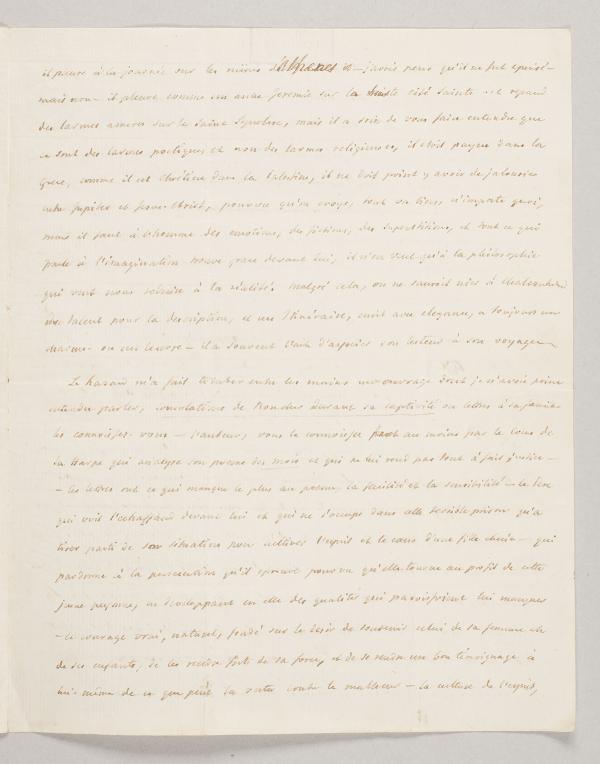 il pleure à la journée sur les ruines d'Athenes et — j'avois peur qu'il ne fut épuisé —
mais non — il pleure comme un autre Jeremie sur la triste cité sainte — et repand
des larmes ameres sur le Saint Sepulcre, mais il a soin de vous faire entendre que
ce sont des larmes poetiques et non des larmes religieuses, il étoit payen dans la
Grece, comme il est chrétien dans la Palestine, il ne doit point y avoir de jalousies
entre Jupiter et Jesus-Christ, pourvu qu'on croye, tout va bien, n'importe quoi,
mais il faut à l'homme des emotions, des fictions, des superstitions, et tout ce qui
parle à l'imagination trouve grace devant lui, il n'en veut qu'à la philosophie
qui veut nous reduire à la réalité. malgré cela, on ne sauroit nier à Chateaubriand
du talent pour la description, et un Itinéraire, ecrit avec elegance, a toujours un
charme — ou un leurre — il a souvent l'art d'associer son lecteur à son voyage —
Le hazard m'a fait tomber entre les mains un ouvrage dont je n'avois point
entendu parler, consolations de Roucher durant sa captivité ou lettres à sa famille
les connoissez-vous — l'auteur, vous le connoissez au moins par le Cours de
la Harpe qui analyse son poeme des mois et qui ne lui rend pas tout à fait justice —
— les lettres ont ce qui manque le plus au poeme, la facilité et la sensibilité — le
qui voit l'echaffaud devant lui et qui ne s'occupe dans cette terrible prison qu'à
tirer parti de son situation pour cultiver l'esprit et le cœur d'une fille cherie — qui
pardonne à la persecution qu'il eprouve pourvu qu'elle tourne au profit de cette
jeune personne, en developpant en elle des qualités qui paroissoient lui manquer
— le courage vrai, naturel, fondé sur le desir de soutenir celui de sa femme et
de ses enfants, de les rendre forts de sa force, et de se rendre un bon témoignage à
lui-même de ce que peut la vertu contre le malheur — la culture de l'esprit,